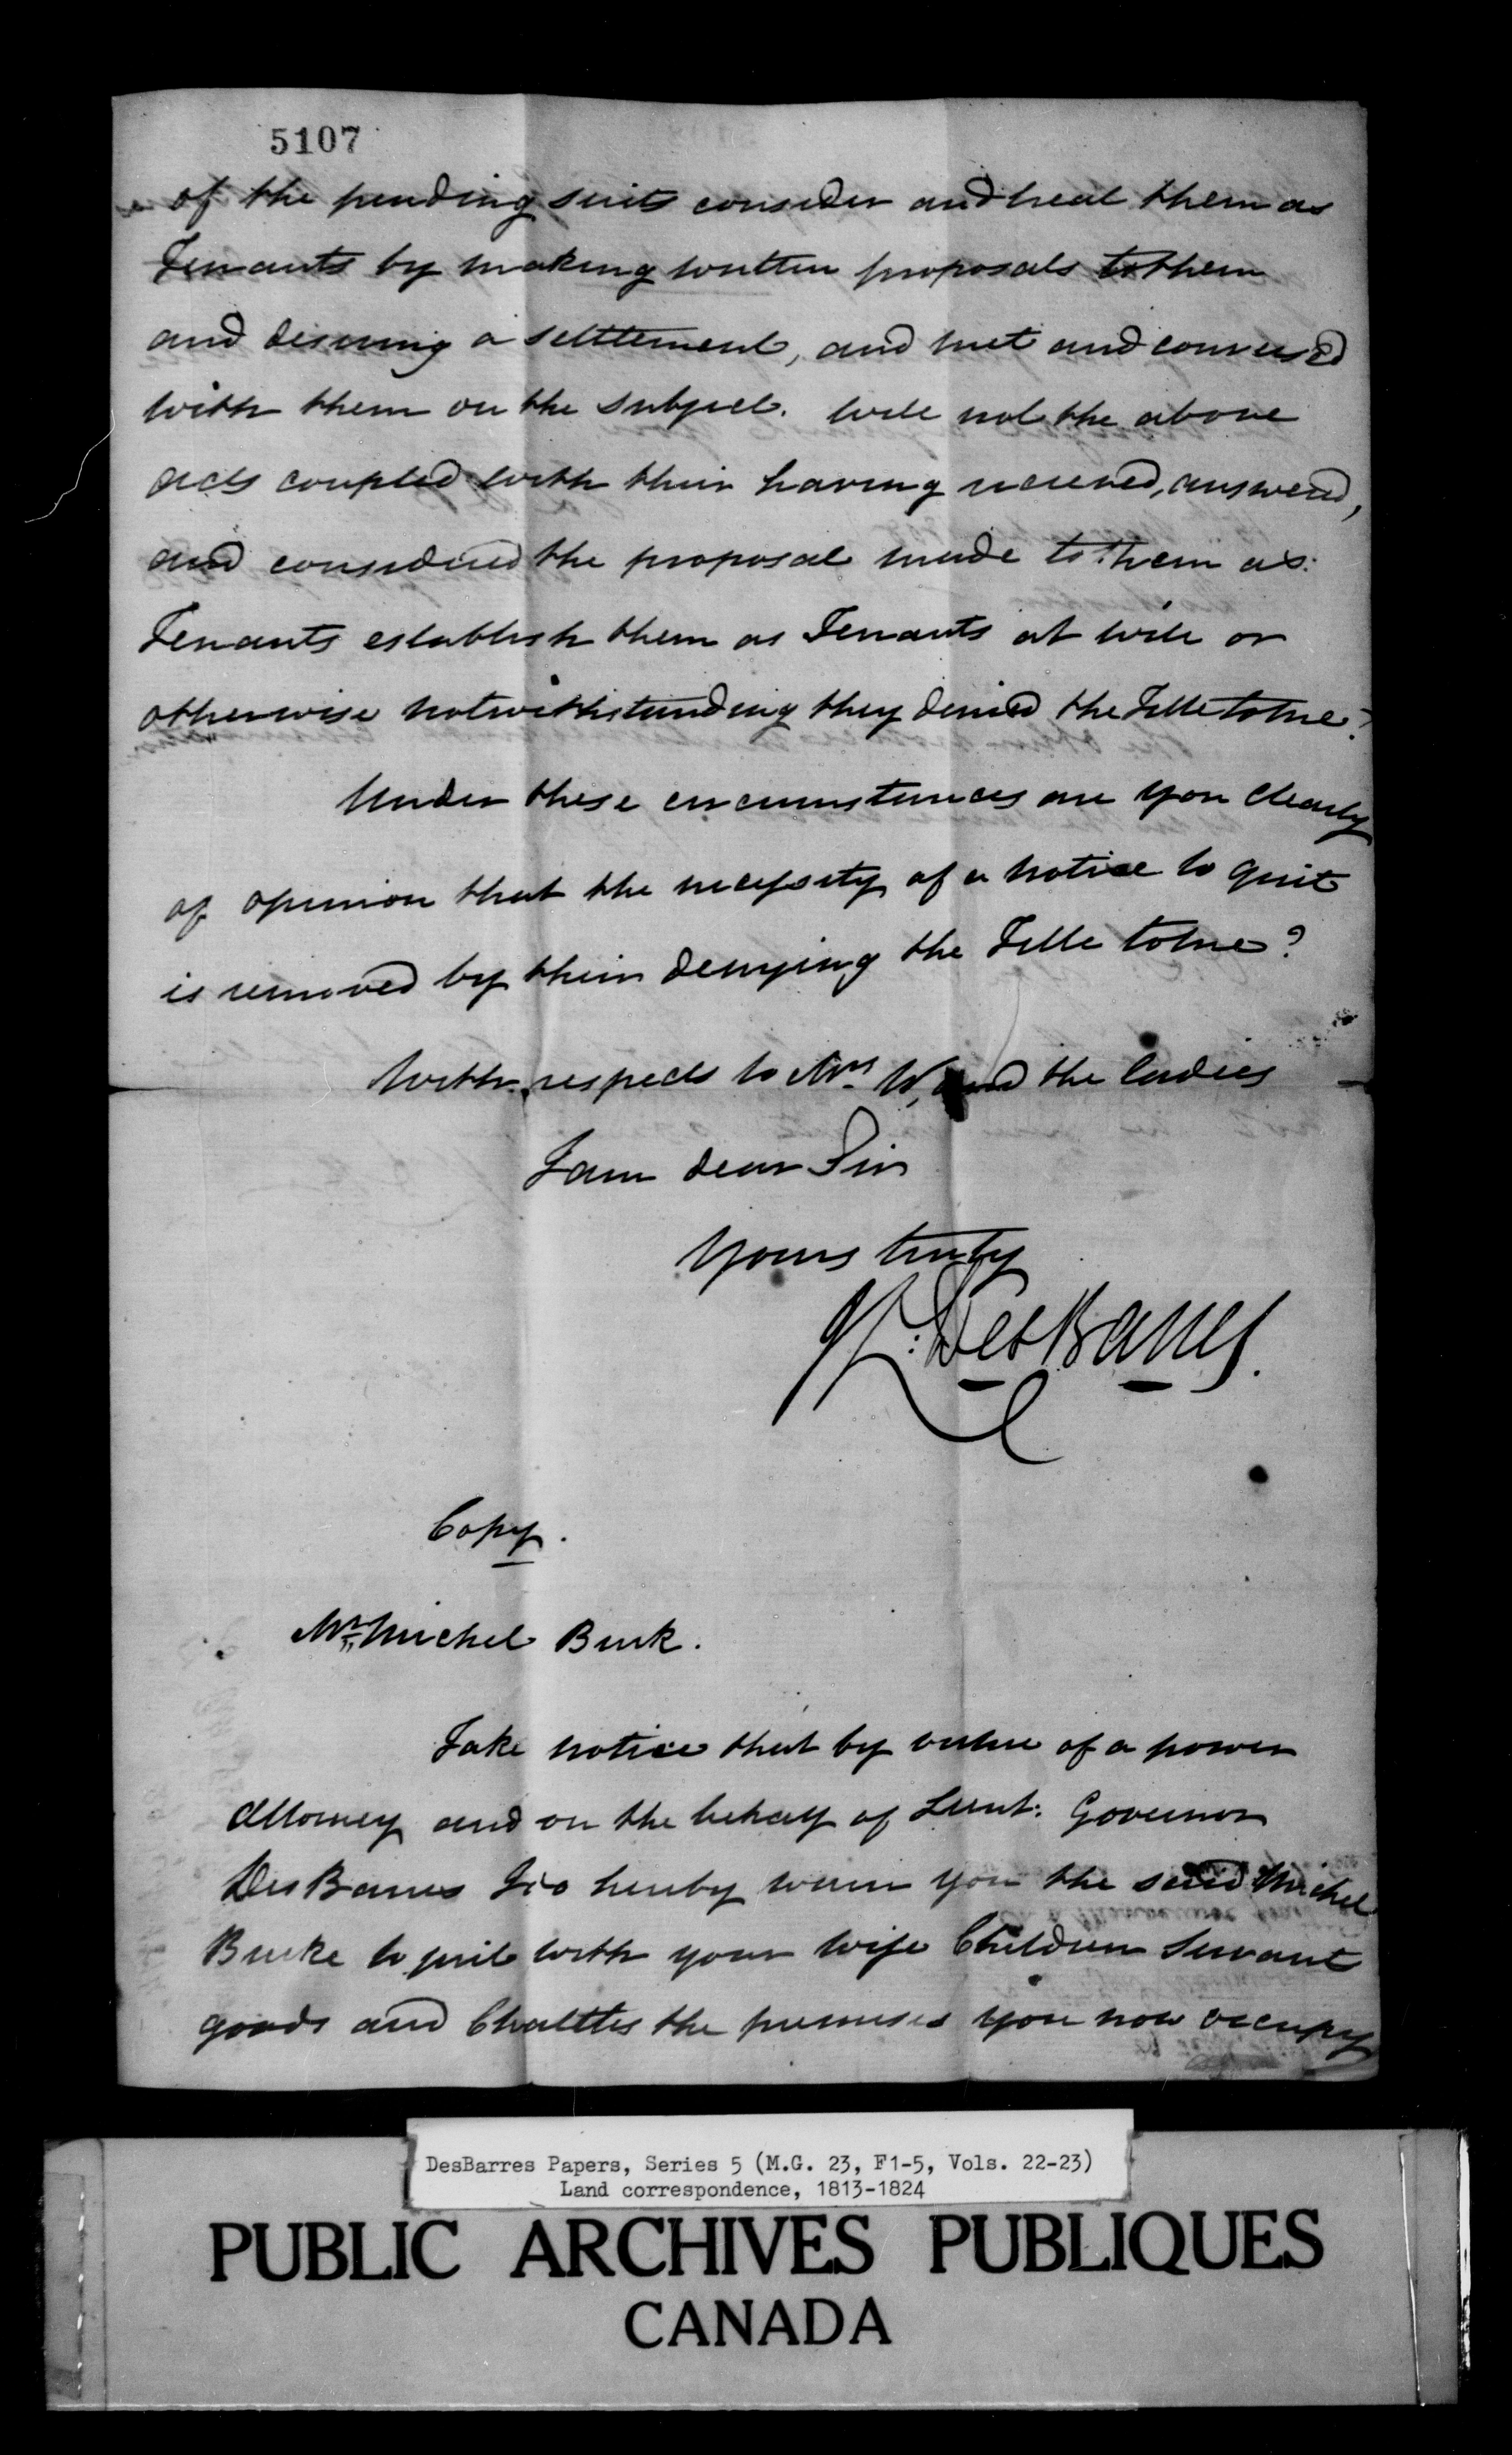 5107
of the pending suits consider and treat them as
Tenants by making written proposals to them
and desiring a settlement, and met and conversed
with them on the subject. Will not the above
acts coupled with their having received, answered,
and considered the proposal made to them as
Tenants establish them as Tenants at will or
otherwise notwithstanding they denied the Title to me?
Under these circumstances are you clearly
of opinion that the necessity of a notice to quit
is removed by their denying the Title to me?
With respects to Mrs W. and the ladies
I am dear Sir
Yours truly
DesBarres.
Copy.
Mr. Michel Burk.
Take notice that by virtue of a power
Attorney and on the behalf of Lieut: Governor
DesBarres I do hereby warn you the said Michel
Burke to quit with your wife Children Servant
goods and Chattles the premises you now occupy
DesBarres Papers, Series 5 (M.G. 23, F1-5, Vols. 22-23)
Land correspondence, 1813-1824
PUBLIC ARCHIVES PUBLIQUES
CANADA